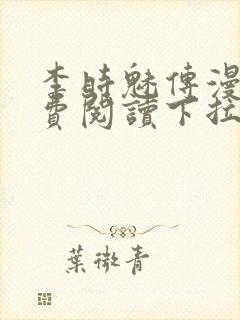 李時魅傳漫
費閱讀下拉
葉微青